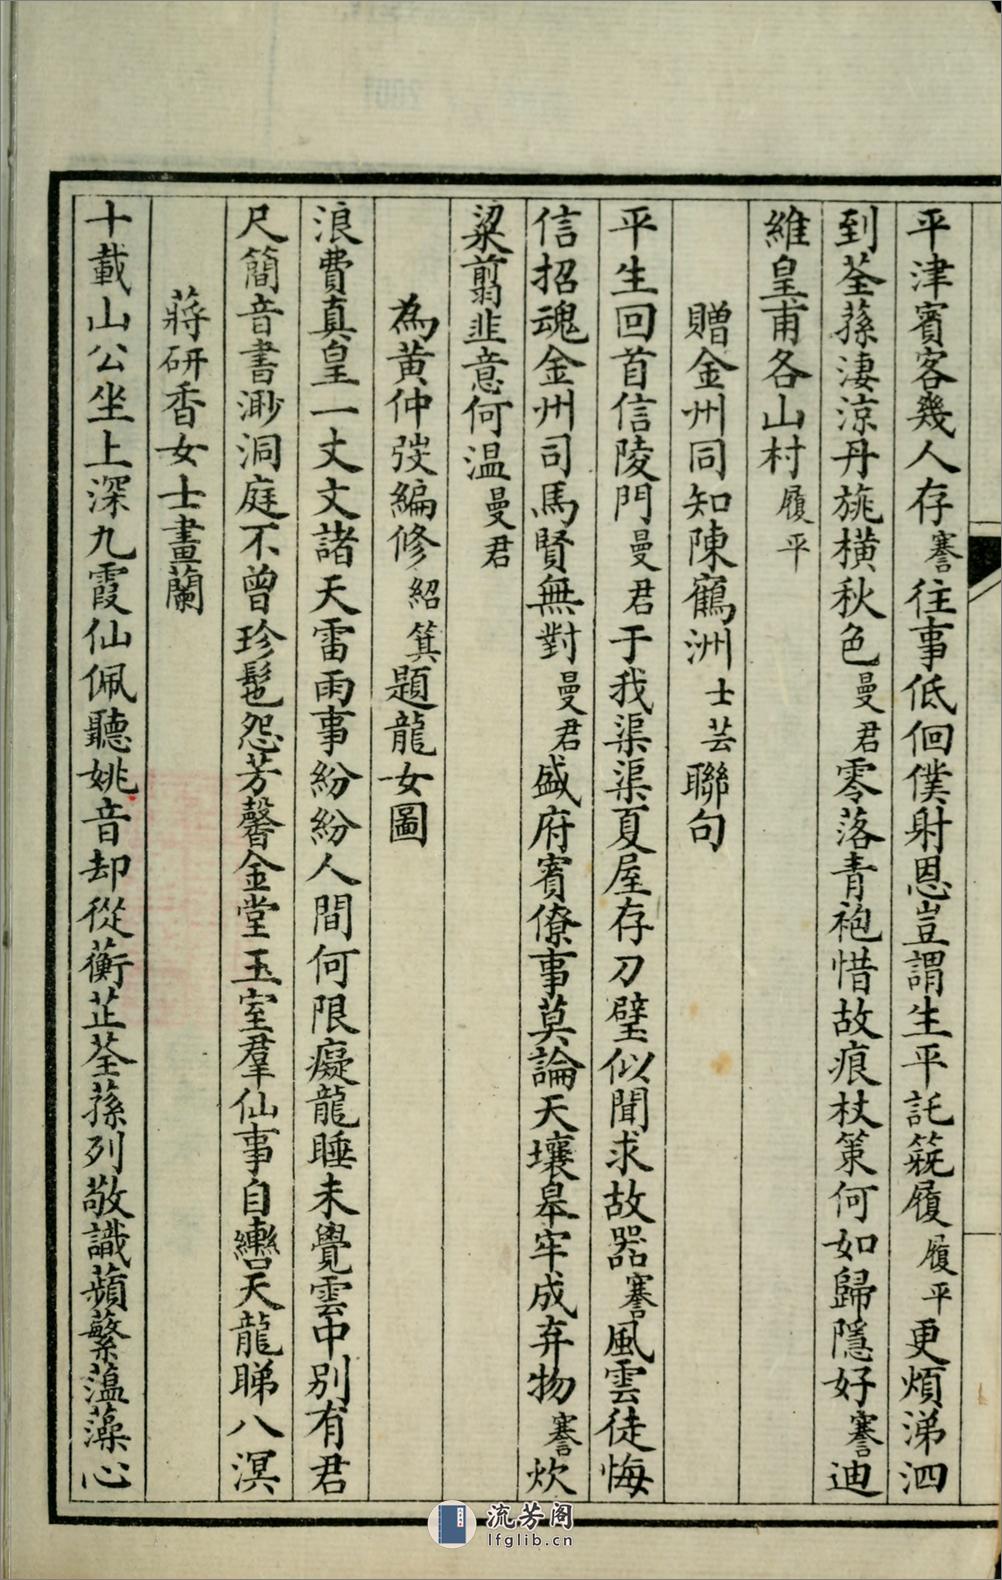 平津賓客幾人存謇往事低佪僕射恩豈謂生平託簪履履平更煩涕泗
到荃蓀淒涼丹旐橫秋色曼君零落青袍惜故痕杖策何如歸隱好謇迪
維皇甫各山村履平
贈金州同知陳鶴洲士芸聯句
平生回首信陵門曼君于我渠渠夏屋存刀璧似聞求故器謇風雲徒悔
信招魂金州司馬賢無對曼君盛府賓僚事莫論天壤皋牢成弃物謇炊
粱翦韭意何溫曼君
為黃仲弢編修紹箕題龍女圖
浪費真皇一丈文諸天雷雨事紛紛人間何限癡龍睡未覺雲中別有君
尺簡音書渺洞庭不曾珍髢怨芳馨金堂玉室羣仙事自轡天龍睇八溟
蔣研香女士畫蘭
十載山公坐上深九霞仙佩聽姚音却從蘅芷荃蓀列敬識蘋蘩薀藻心
流芳阁
lfglib.cn